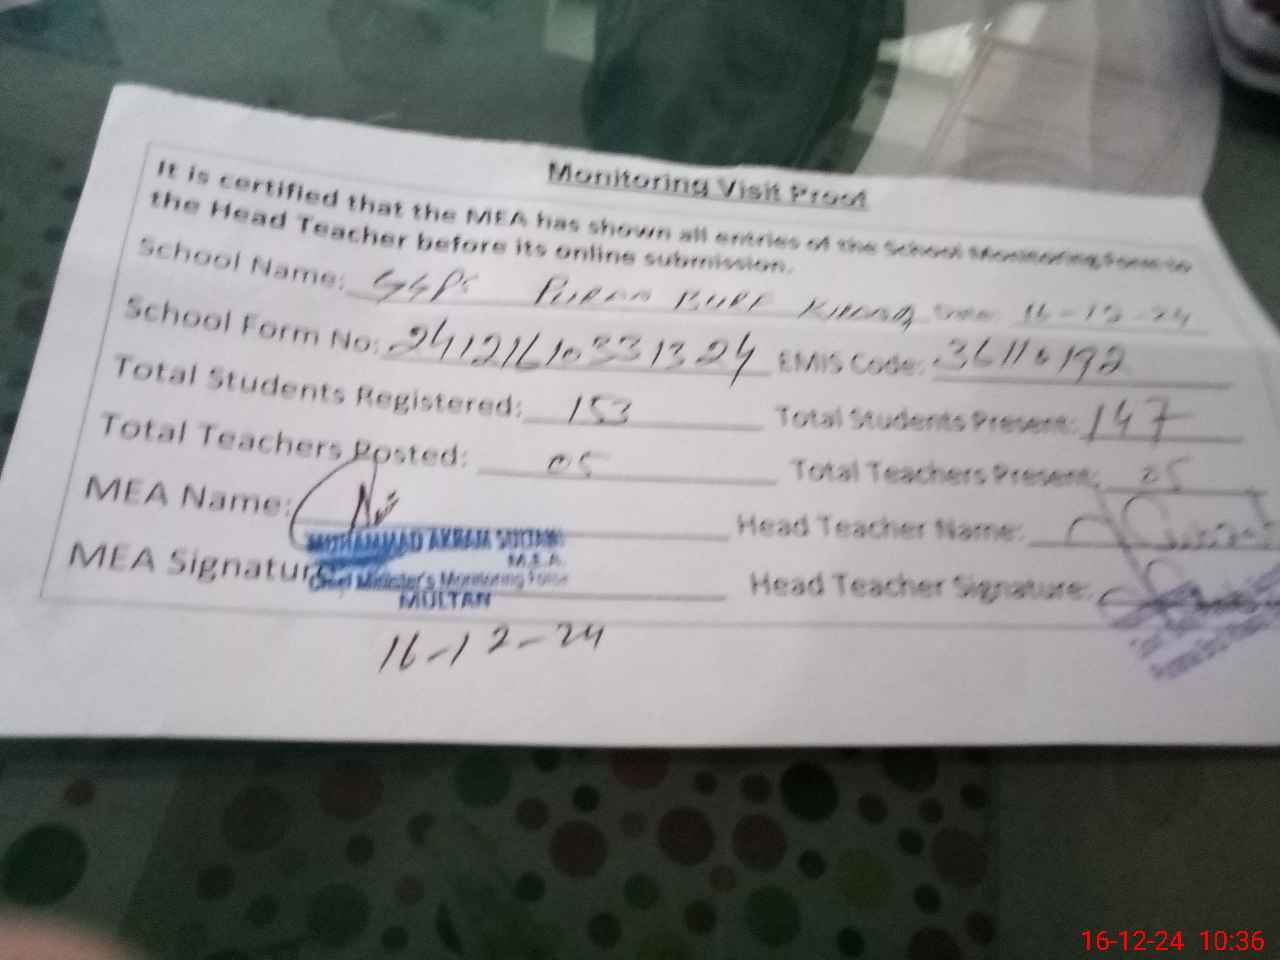 Monitoring Visit Proof
It is certified that the MEA has shown all entries of the School Monitoring Form to
the Head Teacher before its online submission.
School Name: GGPS Date: 16-12-24
School Form No: 24121610331324 EMIS Code: 36110192
Total Students Registered: 153 Total Students Present: 147
Total Teachers Posted: 05 Total Teachers Present: 05
MEA Name: Head Teacher Name:
MUHAMMAD AKRAM SULTAN
M.E.A.
MEA Signature: Head Teacher Signature:
Chief Minister's Monitoring Force
MULTAN
16-12-24
16-12-24 10:36